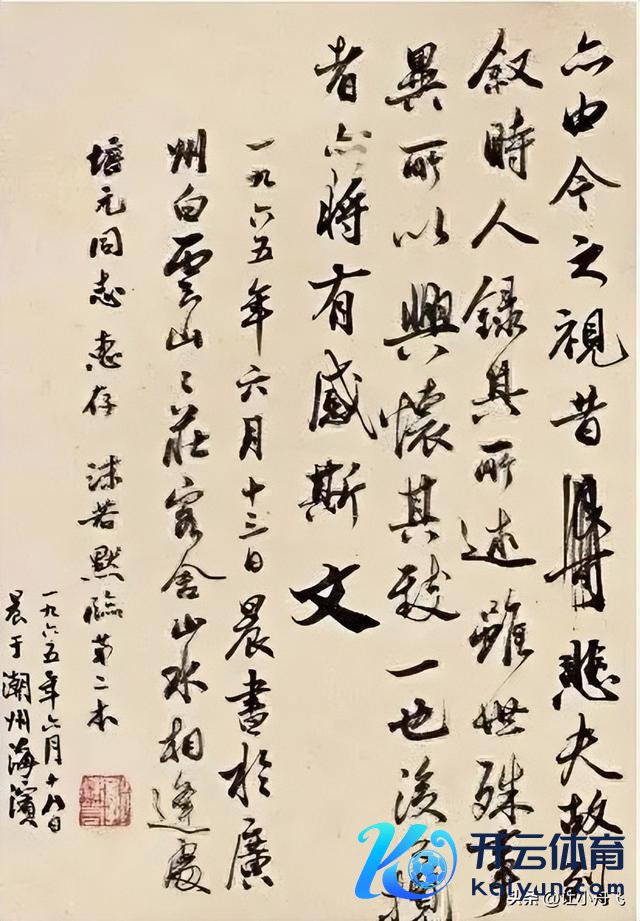 亦由今之視昔悲夫故列
敘時人錄其所述雖世殊事
異所以興懷其致一也後之覽
者亦將有感斯文
一九六五年六月十三日晨書於廣
州白雲山々莊客舍山水相逢處
培元同志惠存 沫若默臨第二本
一九六五年六月十八日
晨于潮州海濱
开云体育
kaiyun.com